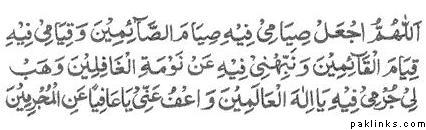 اَللّٰهُمَّ اجْعَلْ صِيَامِيْ فِيْهِ صِيَامَ الصَّآئِمِيْنَ وَقِيَامِيْ فِيْهِ
قِيَامَ الْقَآئِمِيْنَ وَنَبِّهْنِيْ فِيْهِ عَنْ نَوْمَةِ الْغَافِلِيْنَ وَهَبْ
لِيْ جُرْمِيْ فِيْهِ يَا اِلٰهَ الْعَالَمِيْنَ وَاعْفُ عَنِّيْ يَا عَافِيًا عَنِ الْمُجْرِمِيْنَ
paklinks.com